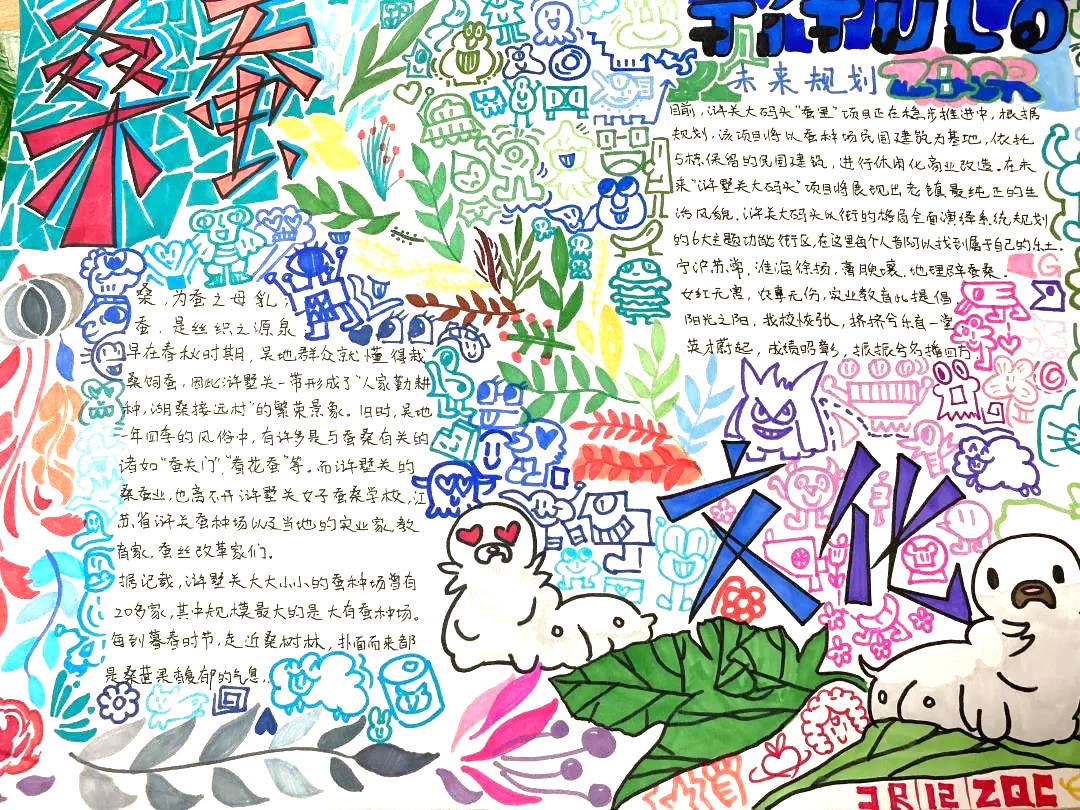 桑蚕
桑，为蚕之母乳；
蚕，是丝织之源泉
早在春秋时期，吴地群众就懂得栽
桑饲蚕，因此浒墅关一带形成了“人家勤耕
种，湖桑接远村”的繁荣景象。旧时，吴地
一年四季的风俗中，有许多是与蚕桑有关的
诸如“蚕关门”，“看花蚕”等。而浒墅关的
桑蚕业，也离不开浒墅关女子蚕桑学校，江
苏省浒关蚕种场以及当地的实业家，教
育家，蚕丝改革家们。
据记载，浒墅关大大小小的蚕种场曾有
20多家，其中规模最大的是大有蚕种场。
每到暮春时节，走近桑树林，扑面而来都
是桑葚果馥郁的气息，
未来规划
目前，浒关大码头“蚕里”项目正在稳步推进中，根据
规划，该项目将以蚕种场民国建筑为基地，依托
5栋保留的民国建筑，进行休闲化商业改造。在未
来“浒墅关大码头”项目将展现出老镇最纯正的生
活风貌。浒关大码头以街的格局全面演绎系统规划
的6大主题功能街区，在这里每个人都可以找到属于自己的乐土。
宁沪苏常，淮海徐扬，膏腴壤，地理阵蚕桑。
女红无害，农事无伤，实业教育此提倡
阳光之阳，我校恢张，挤挤兮乐育一堂
英才蔚起，成绩昭彰，振振兮名播四方
文化
ZQC